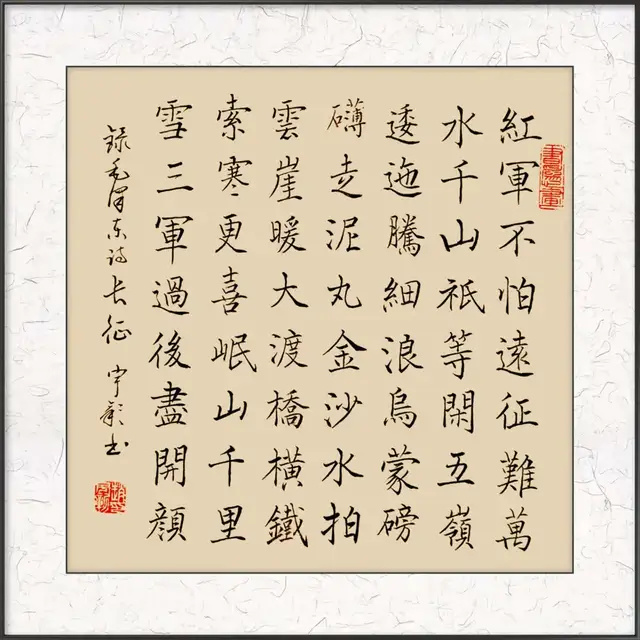 紅軍不怕遠征難萬
水千山祇等閑五嶺
逶迤騰細浪烏蒙磅
礴走泥丸金沙水拍
雲崖暖大渡橋橫鐵
索寒更喜岷山千里
雪三軍過後盡開顏
録毛澤东诗长征 宇彰书